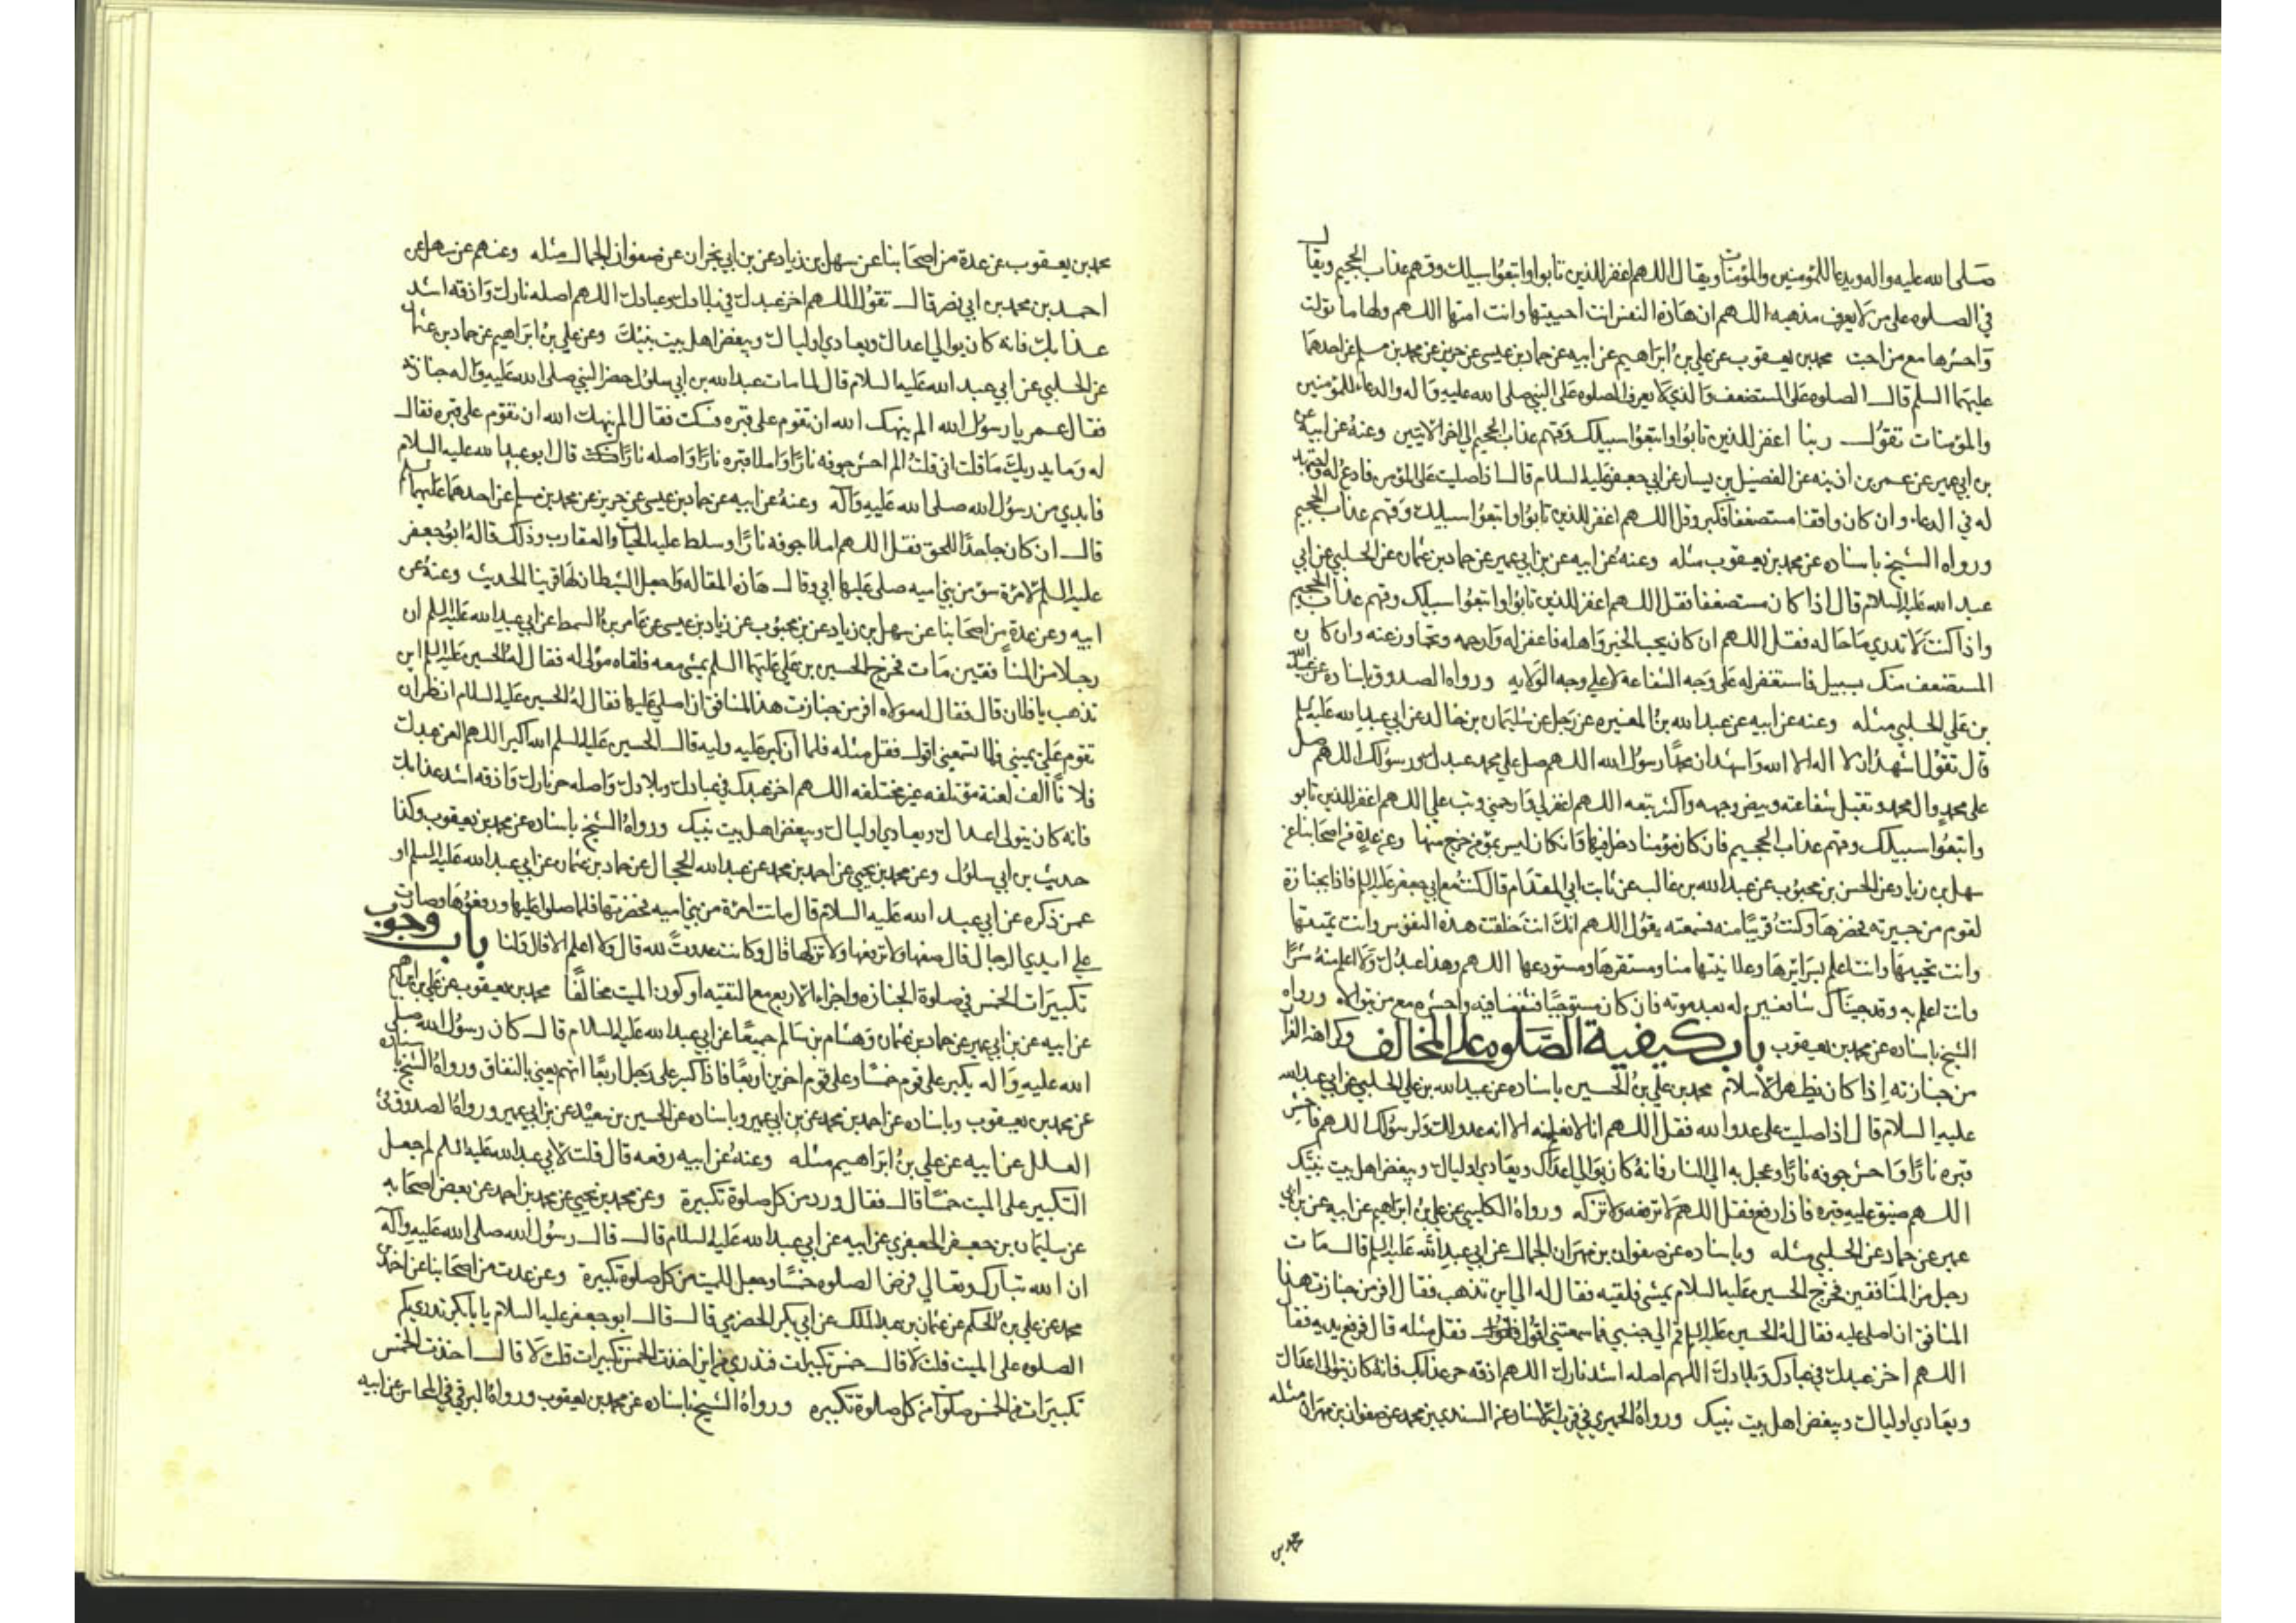 صلى الله عليه واله ويدعا للمؤمنين والمؤمنات ويقال اللهم اغفر للذين تابوا واتبعوا سبيلك وقهم عذاب الجحيم ويقال
في الصلوه على من لا يعرف مذهبه اللهم ان هاذه النفس انت احييتها وانت امتها اللهم ولها ما تولت
واحشرها مع من احبت محمد بن يعقوب عن علي بن ابراهيم عن ابيه عن حماد بن عيسى عن حريز عن محمد بن مسلم عن احدهما
عليهما السلم قال الصلوه على المستضعف والذي لا يعرف الصلوه على النبي صلى الله عليه واله والدعاء للمؤمنين
والمؤمنات تقول ربنا اغفر للذين تابوا واتبعوا سبيلك وقهم عذاب الجحيم الى اخر الايتين وعنه عن ابيه عن
بن ابي عمير عن عمر بن اذينه عن الفضيل بن يسار عن ابي جعفر عليه السلام قال اذا صليت على المؤمن فادع له واجتهد
له في الدعاء وان كان واقفا مستضعفا فكبر وقل اللهم اغفر للذين تابوا واتبعوا سبيلك وقهم عذاب الجحيم
ورواه الشيخ باسناده عن محمد بن يعقوب مثله وعنه عن ابيه عن بن ابي عمير عن حماد بن عثمان عن الحلبي عن ابي
عبد الله عليه السلام قال اذا كان مستضعفا فقل اللهم اغفر للذين تابوا واتبعوا سبيلك وقهم عذاب الجحيم
واذا كنت لا تدري ما حاله فقل اللهم ان كان يحب الخير واهله فاغفر له وارحمه وتجاوز عنه وان كان
المستضعف منك بسبيل فاستغفر له على وجه الشفاعة لا على وجه الولايه ورواه الصدوق باسناده عن عبيد الله
بن علي الحلبي مثله وعنه عن ابيه عن عبد الله بن المغيره عن رجل عن سليمان بن خالد عن ابي عبد الله عليه السلم
قال تقول اشهد ان لا اله الا الله واشهد ان محمدا رسول الله اللهم صل على محمد عبدك ورسولك اللهم صل
على محمد وال محمد وتقبل شفاعته وبيض وجهه واكثر تبعه اللهم اغفر لي وارحمني وتب علي اللهم اغفر للذين تابو
واتبعوا سبيلك وقهم عذاب الجحيم فان كان مؤمنا دخل فيها وان كان ليس بمؤمن خرج منها وعن عدة من اصحابنا عن
سهل بن زياد عن الحسن بن محبوب عن عبد الله بن غالب عن ثابت ابي المقدام قال كنت مع ابي جعفر عليه السلم فاذا بجنازة
لقوم من جيرته فحضرها وكنت قريبا منه فسمعته يقول اللهم انك انت خلقت هذه النفوس وانت تميتها
وانت تحييها وانت اعلم بسرائرها وعلانيتها منا ومستقرها ومستودعها اللهم وهذا عبدك ولا اعلم منه شرا
وانت اعلم به وقد جيناك شافعين له بعد موته فان كان مستوجبا فشفعنا فيه واحشره مع من يتولاه ورواه
الشيخ باسناده عن محمد بن يعقوب باب كيفية الصلوه على المخالف وكراهة الفرار
من جنازته اذا كان يظهر الاسلام محمد بن علي بن الحسين باسناده عن عبيد الله بن علي الحلبي عن ابي عبد الله
عليه السلام قال اذا صليت على عدو الله فقل اللهم انا لا نعلم منه الا انه عدو لك ولرسولك اللهم فاحش
قبره نارا واحش جوفه نارا وعجل به الى النار فانه كان يوالي اعداك ويعادي اولياك ويبغض اهل بيت نبيك
اللهم ضيق عليه قبره فاذا رفع فقل اللهم لا ترفعه ولا تزكه ورواه الكليني عن علي بن ابراهيم عن ابيه عن بن ابي
عمير عن حماد عن الحلبي مثله وباسناده عن صفوان بن مهران الجمال عن ابي عبد الله عليه السلم قال مات
رجل من المنافقين فخرج الحسين عليه السلام يمشي فلقيه فقال له الى اين تذهب فقال افر من جنازت هذا
المنافق ان اصلي عليه فقال له الحسين عليه السلم قم الى جنبي فما سمعتني اقول فقل مثله قال فرفع يديه فقال
اللهم اخز عبدك في عبادك وبلادك اللهم اصله اشد نارك اللهم اذقه حر عذابك فانه كان يتوالى اعداك
ويعادي اولياك ويبغض اهل بيت نبيك ورواه الحميري في قرب الاسناد عن السندي بن محمد عن صفوان بن مهران مثله
محمد بن
محمد بن يعقوب عن عدة من اصحابنا عن سهل بن زياد عن بن ابي نجران عن صفوان الجمال مثله وعنهم عن سهل عن
احمد بن محمد بن ابي نصر قال تقول اللهم اخز عبدك في بلادك وعبادك اللهم اصله نارك واذقه اشد
عذابك فانه كان يوالي اعداك ويعادي اولياك ويبغض اهل بيت نبيك وعن علي بن ابراهيم عن حماد بن عثمان
عن الحلبي عن ابي عبد الله عليه السلام قال لما مات عبد الله بن ابي سلول حضر النبي صلى الله عليه واله جنازته
فقال عمر يا رسول الله الم ينهك الله ان تقوم على قبره فسكت فقال الم ينهك الله ان تقوم على قبره فقال
له وما يدريك ما قلت اني قلت الم احش جوفه نارا واملا قبره نارا واصله نارا قال ابو عبد الله عليه السلام
فابدي من رسول الله صلى الله عليه واله وعنه عن ابيه عن حماد بن عيسى عن حريز عن محمد بن مسلم عن احدهما عليهما السلم
قال ان كان جاحدا للحق فقل اللهم املا جوفه نارا وسلط عليه الحيات والعقارب وذلك قاله ابو جعفر
عليه السلم لامرة سوء من بني اميه صلى عليها ابي وقال هاذه المقاله واجعل الشيطان لها قرينا الحديث وعنه عن
ابيه وعن عدة من اصحابنا عن سهل بن زياد عن بن محبوب عن زياد بن عيسى عن عامر بن السمط عن ابي عبد الله عليه السلم ان
رجلا من المنافقين مات فخرج الحسين بن علي عليهما السلم يمشي معه فلقاه مولى له فقال له الحسين عليه السلم اين
تذهب يا فلان قال فقال له مولاه افر من جنازت هذا المنافق ان اصلي عليها فقال له الحسين عليه السلام انظر ان
تقوم على يميني فما تسمعني اقول فقل مثله فلما ان كبر عليه وليه قال الحسين عليه السلم الله اكبر اللهم العن عبدك
فلانا الف لعنة مؤتلفه غير مختلفه اللهم اخز عبدك في عبادك وبلادك واصله حر نارك واذقه اشد عذابك
فانه كان يتولى اعداك ويعادي اولياك ويبغض اهل بيت نبيك ورواه الشيخ باسناده عن محمد بن يعقوب وكذا
حديث بن ابي سلول وعن محمد بن يحيى عن احمد بن محمد عن عبد الله الحجال عن حماد بن عثمان عن ابي عبد الله عليه السلم او
عمن ذكره عن ابي عبد الله عليه السلام قال ماتت امرة من بني اميه فحضرتها فلما صلوا عليها ورفعوها وصارت
على ايدي الرجال قال اللهم ضعها ولا ترفعها ولا تزكها قال وكانت عدوت لله قال ولا اعلم الا قال ولنا باب وجوب
تكبيرات الخمس في صلوة الجنازه واجزاء الاربع مع التقيه او كون الميت مخالفا محمد بن يعقوب عن علي بن ابراهيم
عن ابيه عن بن ابي عمير عن حماد بن عثمان وهشام بن سالم جميعا عن ابي عبد الله عليه السلام قال كان رسول الله صلى
الله عليه واله يكبر على قوم خمسا وعلى قوم اخرين اربعا فاذا كبر على رجل اربعا اتهم يعني بالنفاق ورواه الشيخ باسناده
عن محمد بن يعقوب وباسناده عن احمد بن محمد عن بن ابي عمير وباسناده عن الحسين بن سعيد عن بن ابي عمير ورواه الصدوق في
العلل عن ابيه عن علي بن ابراهيم مثله وعنه عن ابيه رفعه قال قلت لابي عبد الله عليه السلم لم جعل
التكبير على الميت خمسا قال فقال ورد من كل صلوة تكبيرة وعن محمد بن يحيى عن محمد بن احمد عن بعض اصحابه
عن سليمان بن جعفر الجعفري عن ابيه عن ابي عبد الله عليه السلام قال قال رسول الله صلى الله عليه واله
ان الله تبارك وتعالى فرض الصلوه خمسا وجعل للميت من كل صلوة تكبيرة وعن عدت من اصحابنا عن احمد بن
محمد عن علي بن الحكم عن عثمان بن عبد الملك عن ابي بكر الحضرمي قال قال ابو جعفر عليه السلام يا بابكر تدري كم
الصلوه على الميت قلت لا قال خمس تكبيرات فتدري من اين اخذت الخمس تكبيرات قلت لا قال اخذت الخمس
تكبيرات من الخمس صلوات من كل صلوة تكبيره ورواه الشيخ باسناده عن محمد بن يعقوب ورواه البرقي في المحاسن عن ابيه